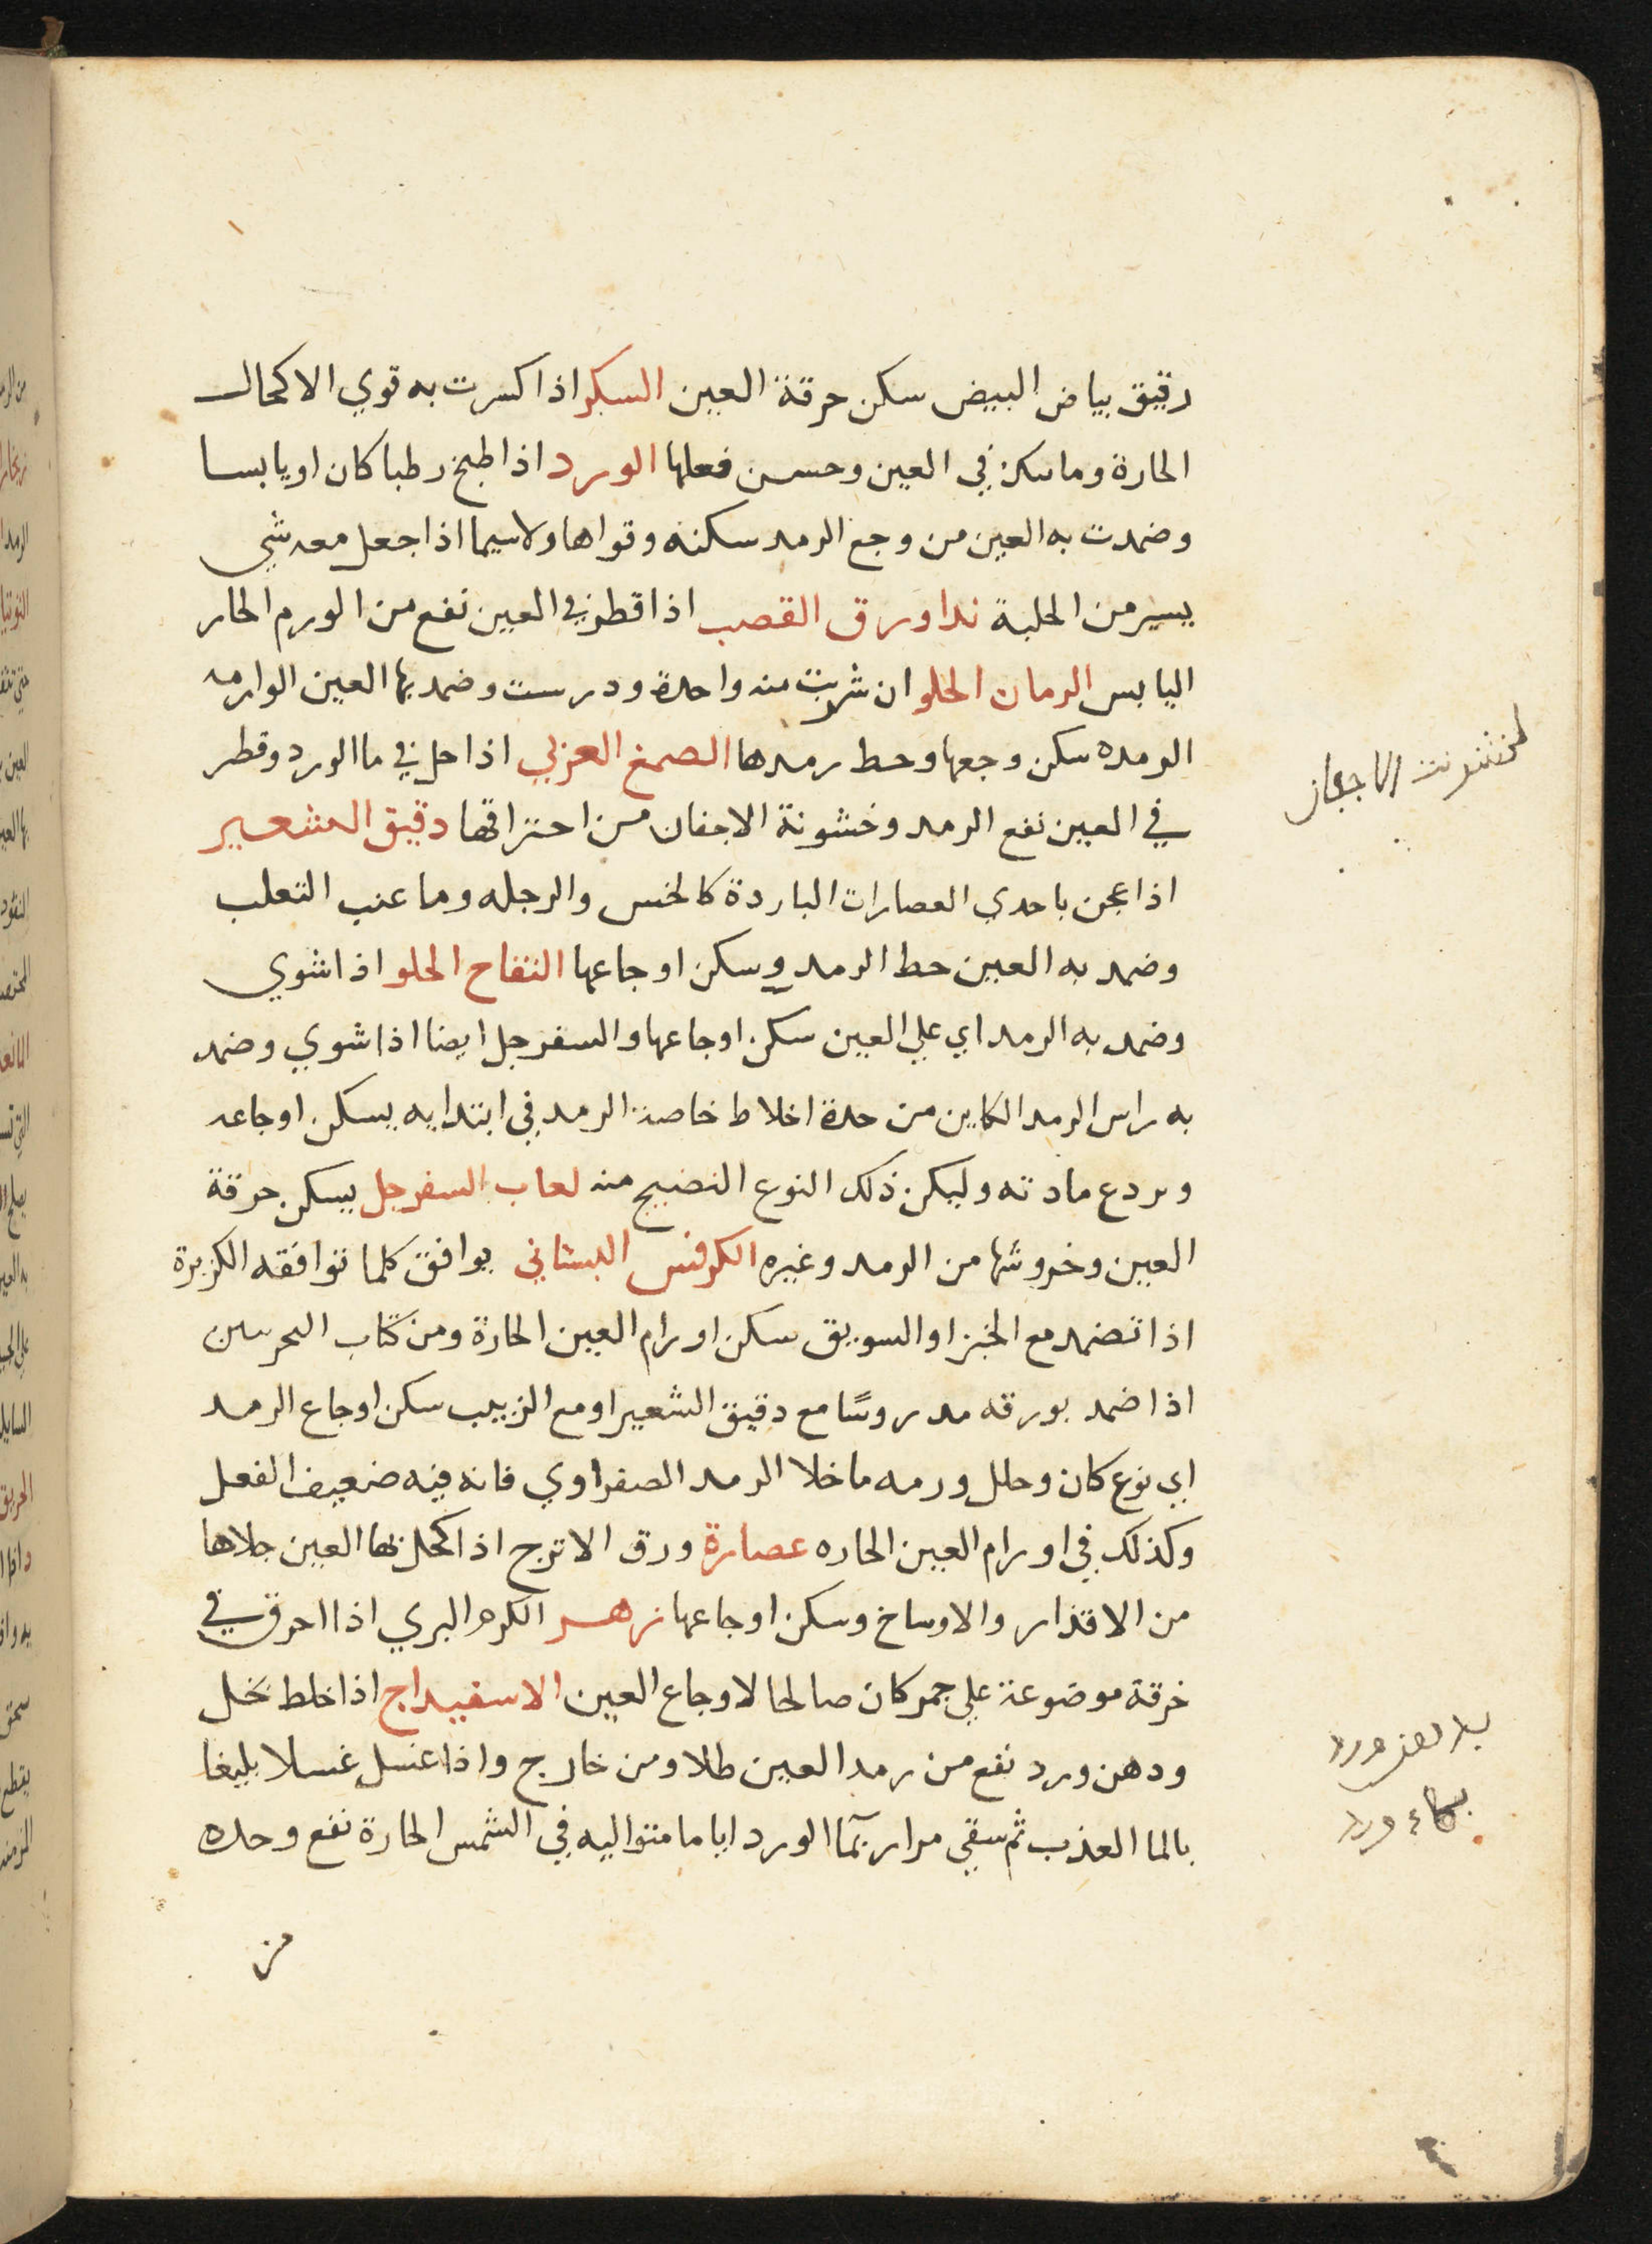 رقيق بياض البيض سكن حرقة العين السكر اذا كسرت به قوي الاكحال
الحارة وما سكن في العين وحسن فعلها الورد اذا طبخ رطبا كان او يابسا
وضمدت به العين من وجع الرمد سكنه وقواها ولاسيما اذا جعل معه شي
يسير من الحلبة ندا ورق القصب اذا قطر في العين نفع من الورم الحار
اليابس الرمان الحلو ان شربت منه واحدة ودرست وضمد بها العين الوارمه
الرمده سكن وجعها وحط رمدها الصمغ العربي اذا حل في ما الورد وقطر
في العين نفع الرمد وخشونة الاجفان من احتراقها دقيق الشعير
اذا عجن باحدي العصارات الباردة كالخس والرجله وما عنب الثعلب
وضمد به العين حط الرمد وسكن اوجاعها التفاح الحلو اذا شوي
وضمد به الرمد اي علي العين سكن اوجاعها والسفرجل ايضا اذا شوي وضمد
به راس الرمد الكاين من حدة اخلاط خاصة الرمد في ابتدايه يسكن اوجاعه
وردع مادته وليكن ذلك النوع النضيج منه لعاب السفرجل يسكن حرقة
العين وخروشها من الرمد وغيره الكرفس البستاني يوافق كلما توافقه الكزبرة
اذا تضمد مع الخبز او السويق سكن اورام العين الحارة ومن كتاب
اذا ضمد بورقه مدروسًا مع دقيق الشعير او مع الزبيب سكن اوجاع الرمد
اي نوع كان وحلل ورمه ما خلا الرمد الصفراوي فانه فيه ضعيف الفعل
وكذلك في اورام العين الحاره عصارة ورق الاترج اذا كحل بها العين جلاها
من الاقذار والاوساخ وسكن اوجاعها زهر الكرم البري اذا احرق في
خرقة موضوعة علي جمر كان صالحا لاوجاع العين الاسفيداج اذا خلط بخل
ودهن ورد نفع من رمد العين طلا ومن خارج واذا غسل غسلا بليغا
بالما العذب ثم سقي مرار بما الورد اياما متواليه في الشمس الحارة نفع وحده
من
لخشونت الاجفان
ورد
بماء ورد